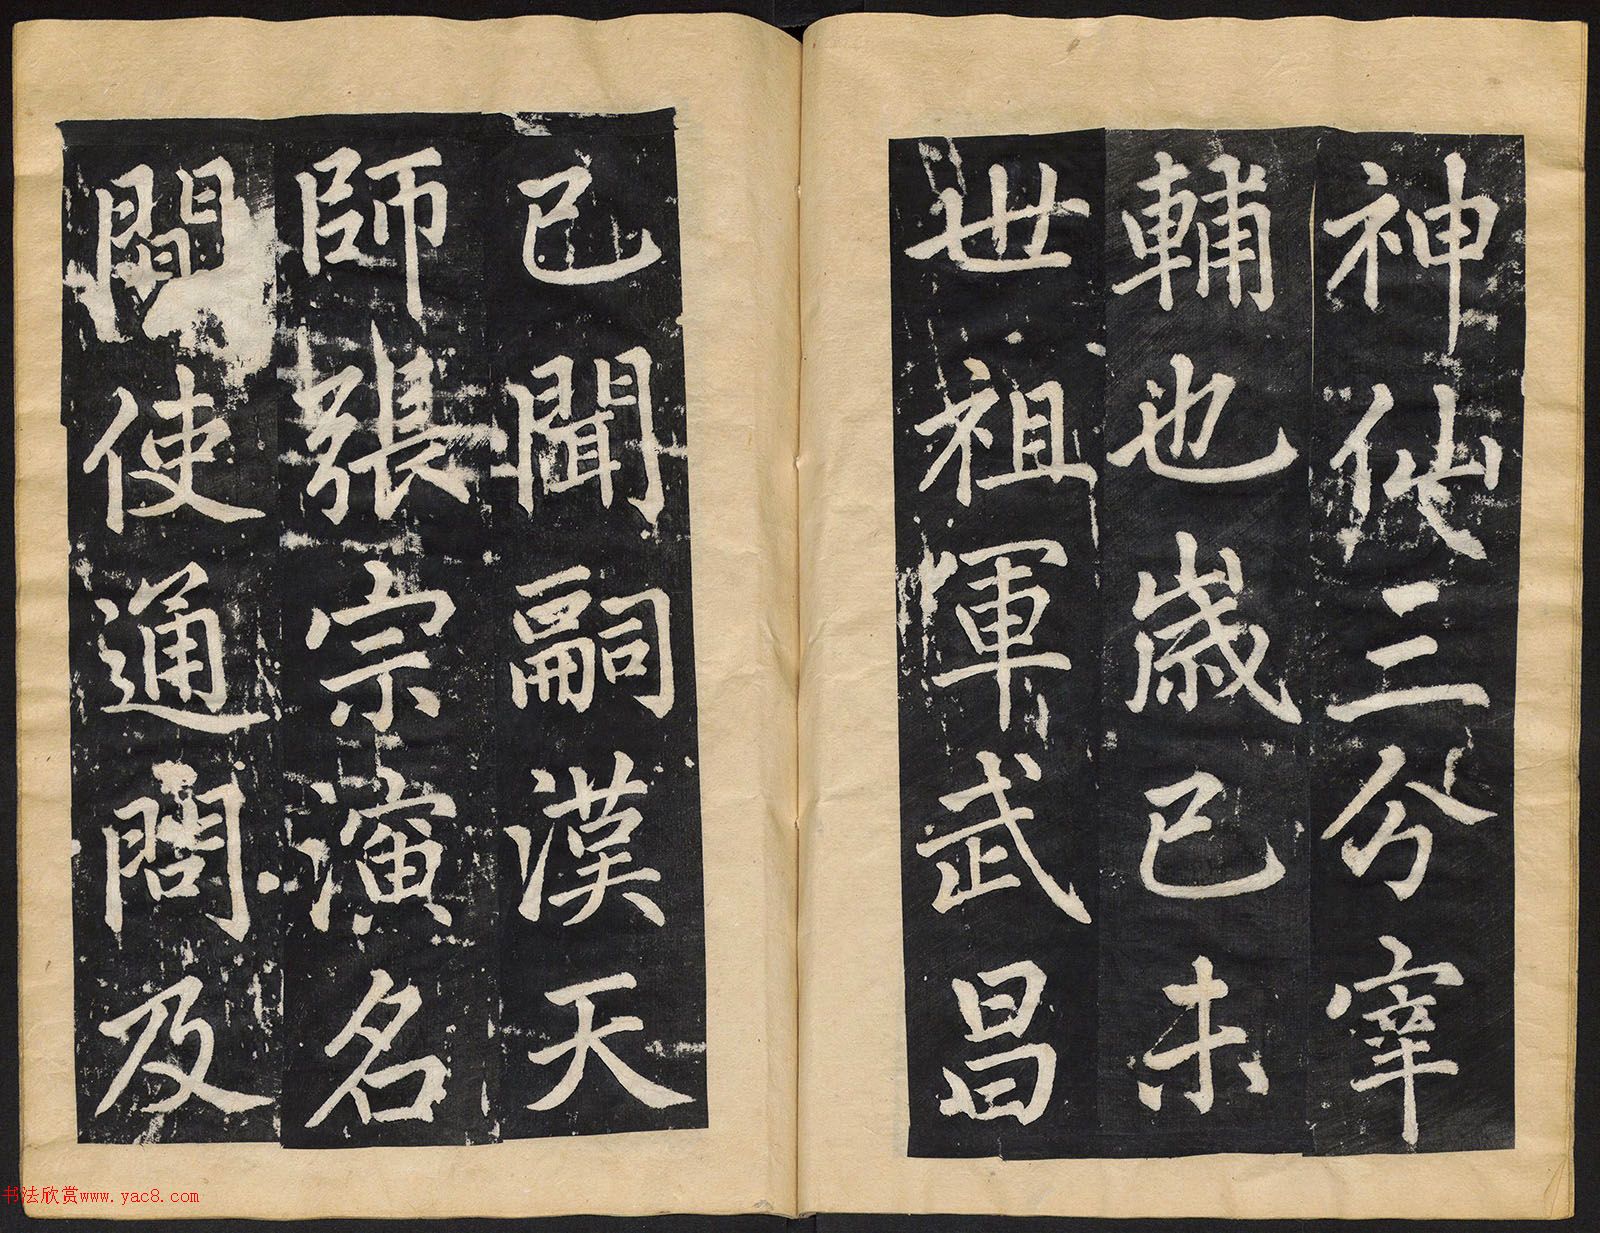 神仙三分宰
輔也歲己未
世祖軍武昌
已聞嗣漢天
師張宗演名
間使通問及
书法欣赏www.yac8.com